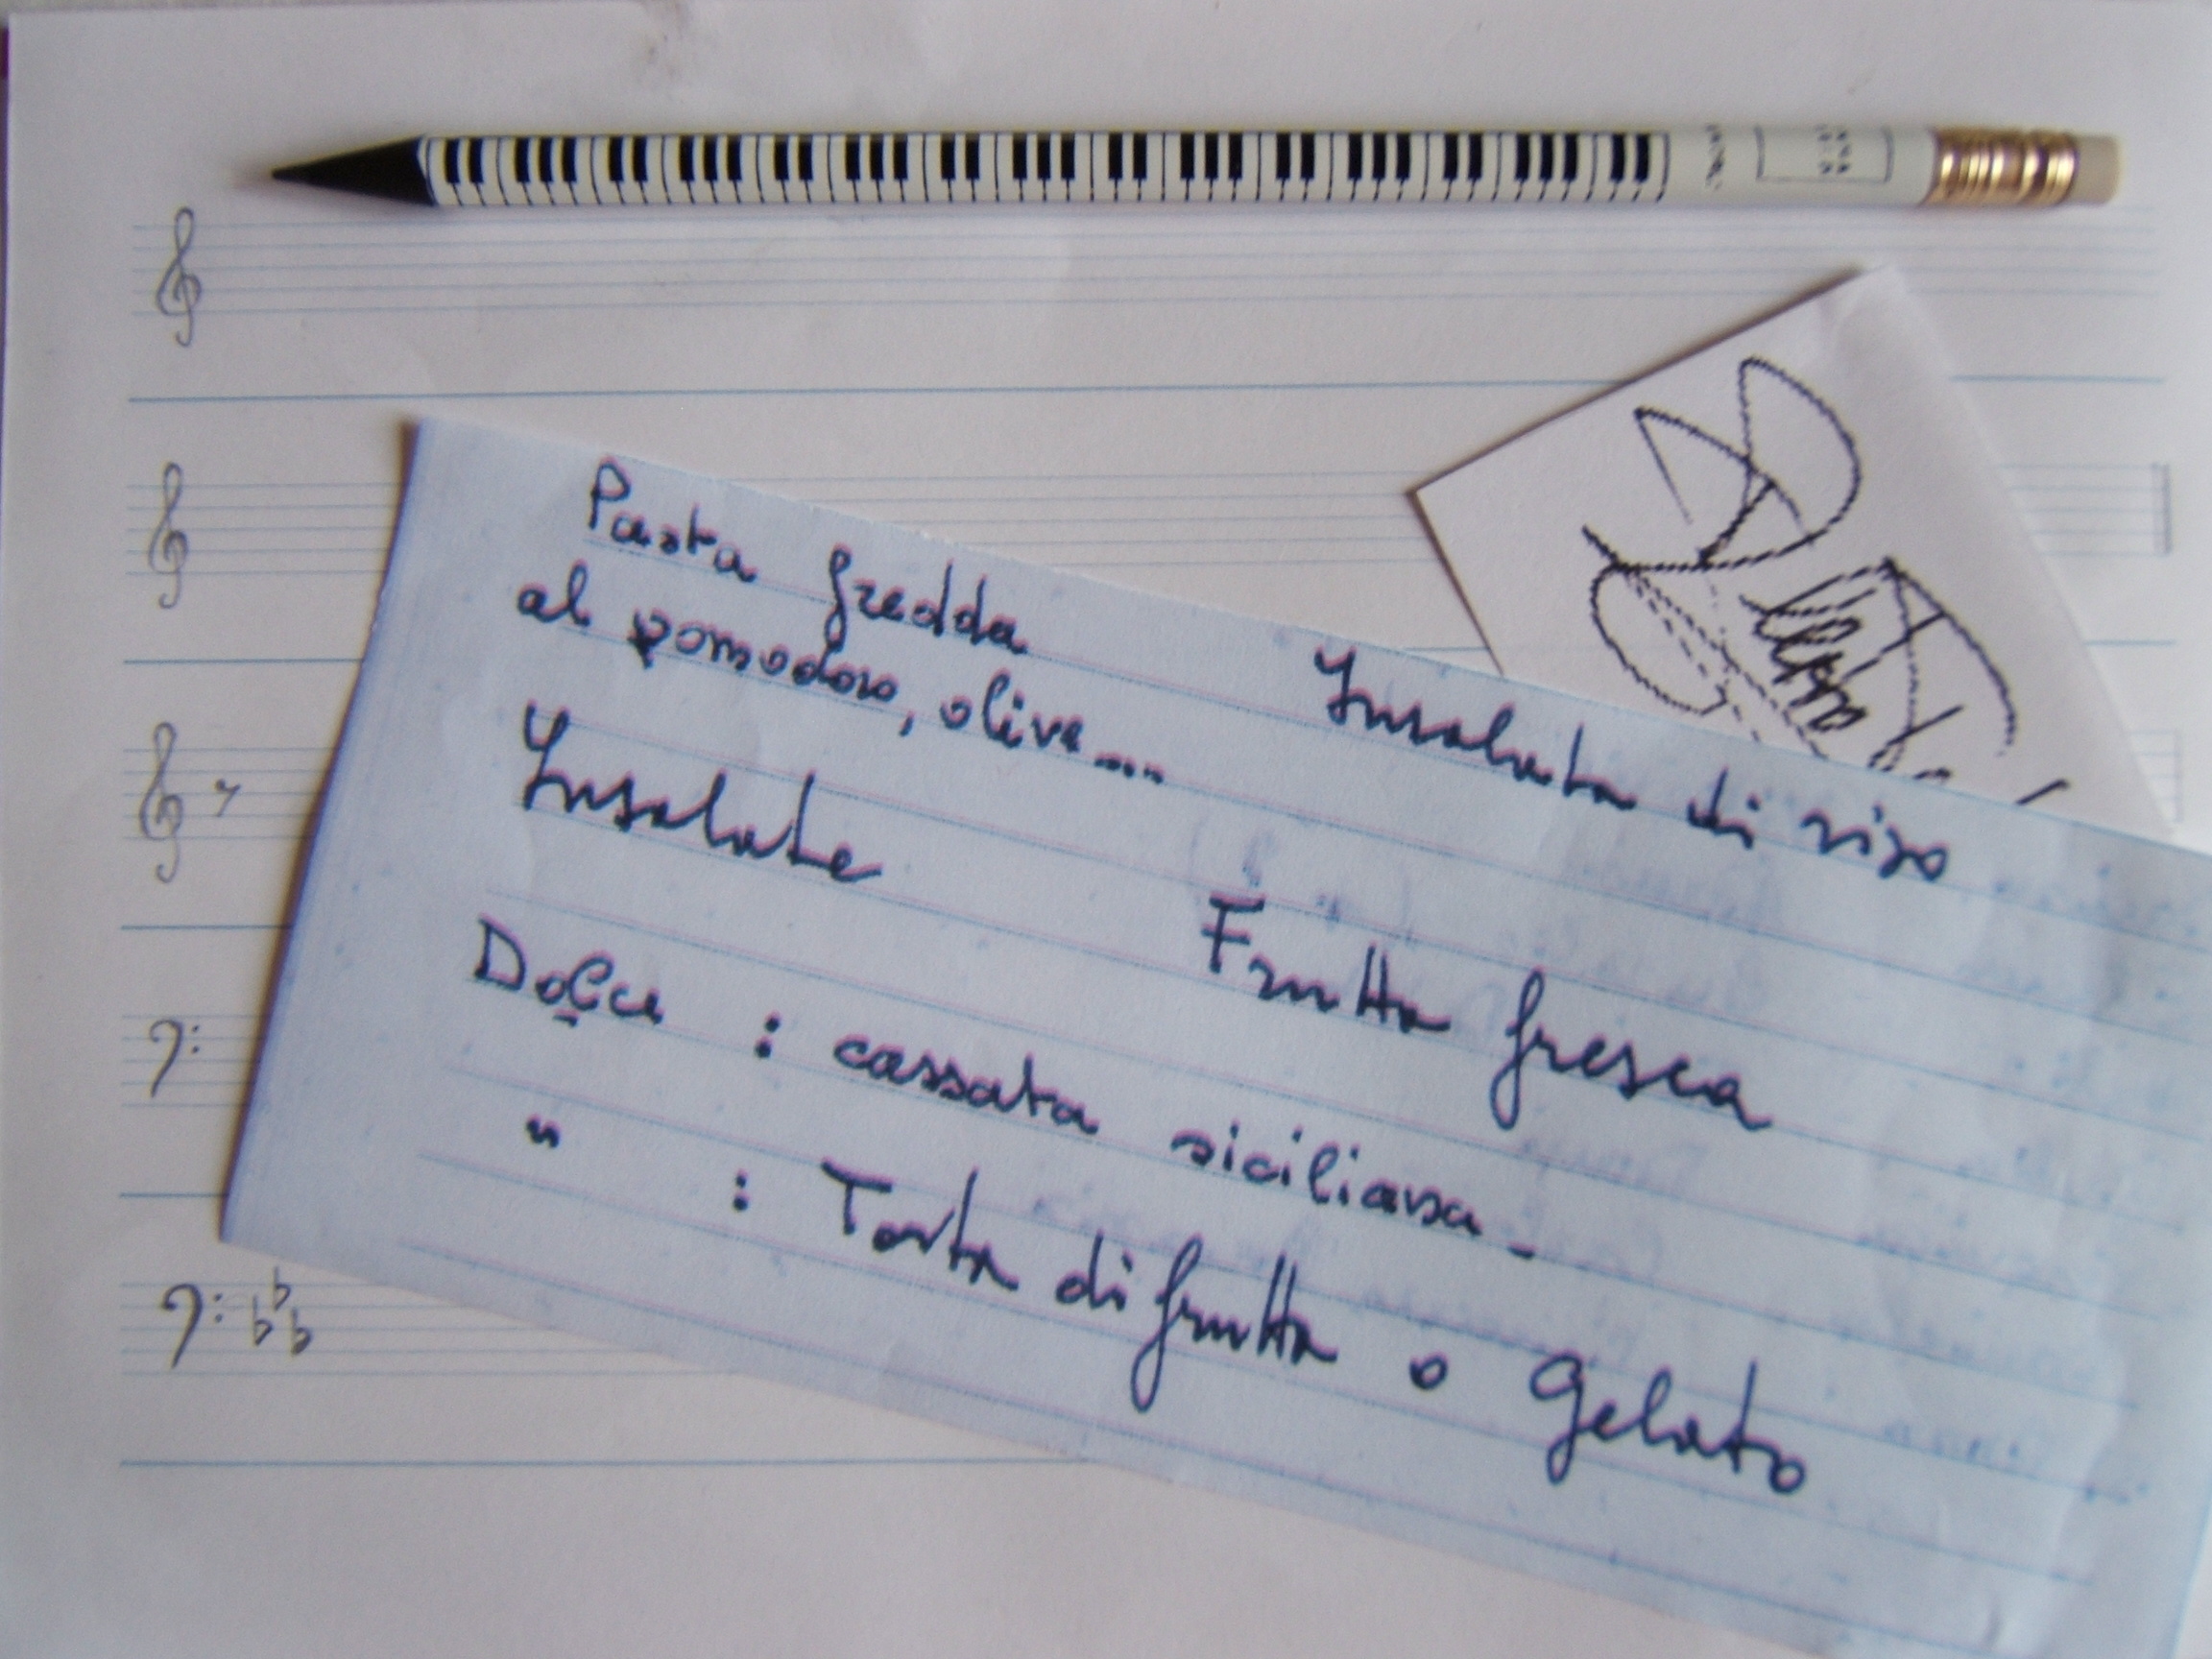 Pasta fredda
al pomodoro, olive....
Insalata di riso
Insalate
Frutta fresca
Dolce : cassata siciliana -
" : Torta di frutta o Gelato